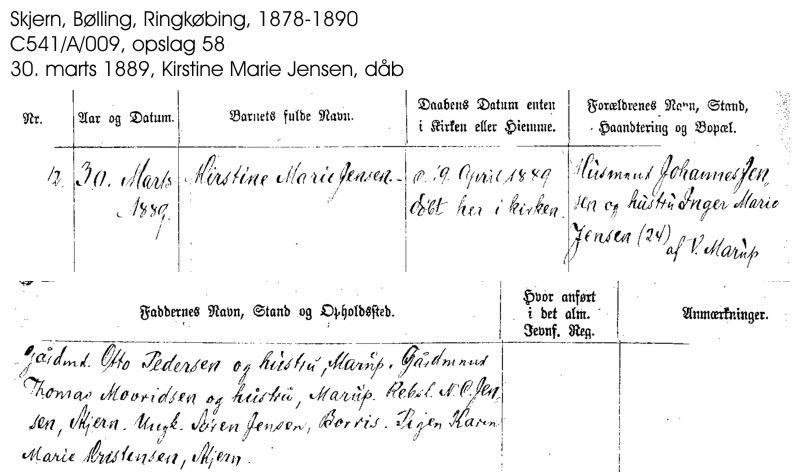 Skjern, Bølling, Ringkøbing, 1878-1890
C541/A/009, opslag 58
30. marts 1889, Kirstine Marie Jensen, dåb
Nr.
Aar og Datum.
Barnets fulde Navn.
Daabens Datum enten
i Kirken eller Hjemme.
Forældrenes Navn, Stand,
Haandtering og Bopæl.
12.
30. Marts
1889.
Kirstine Marie Jensen.
d. 19. April 1889
døbt her i kirken.
Husmand Johannes Jen-
sen og hustru Inger Marie
Jensen (24)
af V. Marup
Faddernes Navn, Stand og Opholdssted.
Hvor anført
i det alm.
Jevnf. Reg.
Anmærkninger.
Gårdmd. Otto Pedersen og hustru, Marup. Gårdmand
Thomas Mouridsen og hustru, Marup. Rebsl. N. C. Jen-
sen, Skjern. Ungk. Søren Jensen, Borris. Pigen Karen
Marie Kristensen, Skjern.